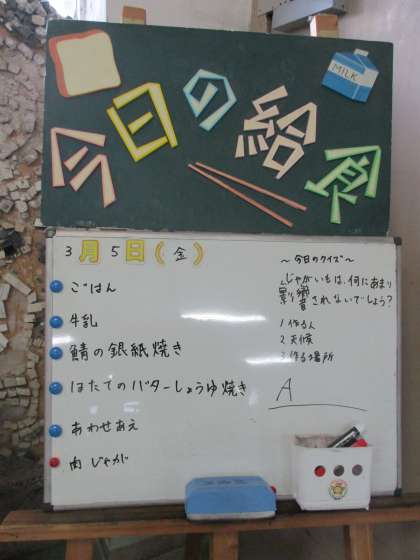 今日の給食
MILK
3月5日(金)
ごはん
牛乳
鯖の銀紙焼き
ほたてのバターしょうゆ焼き
あわせあえ
肉じゃが
～今日のクイズ～
じゃがいもは、何にあまり
影響されないでしょう?
1 作る人
2 天候
3 作る場所
A